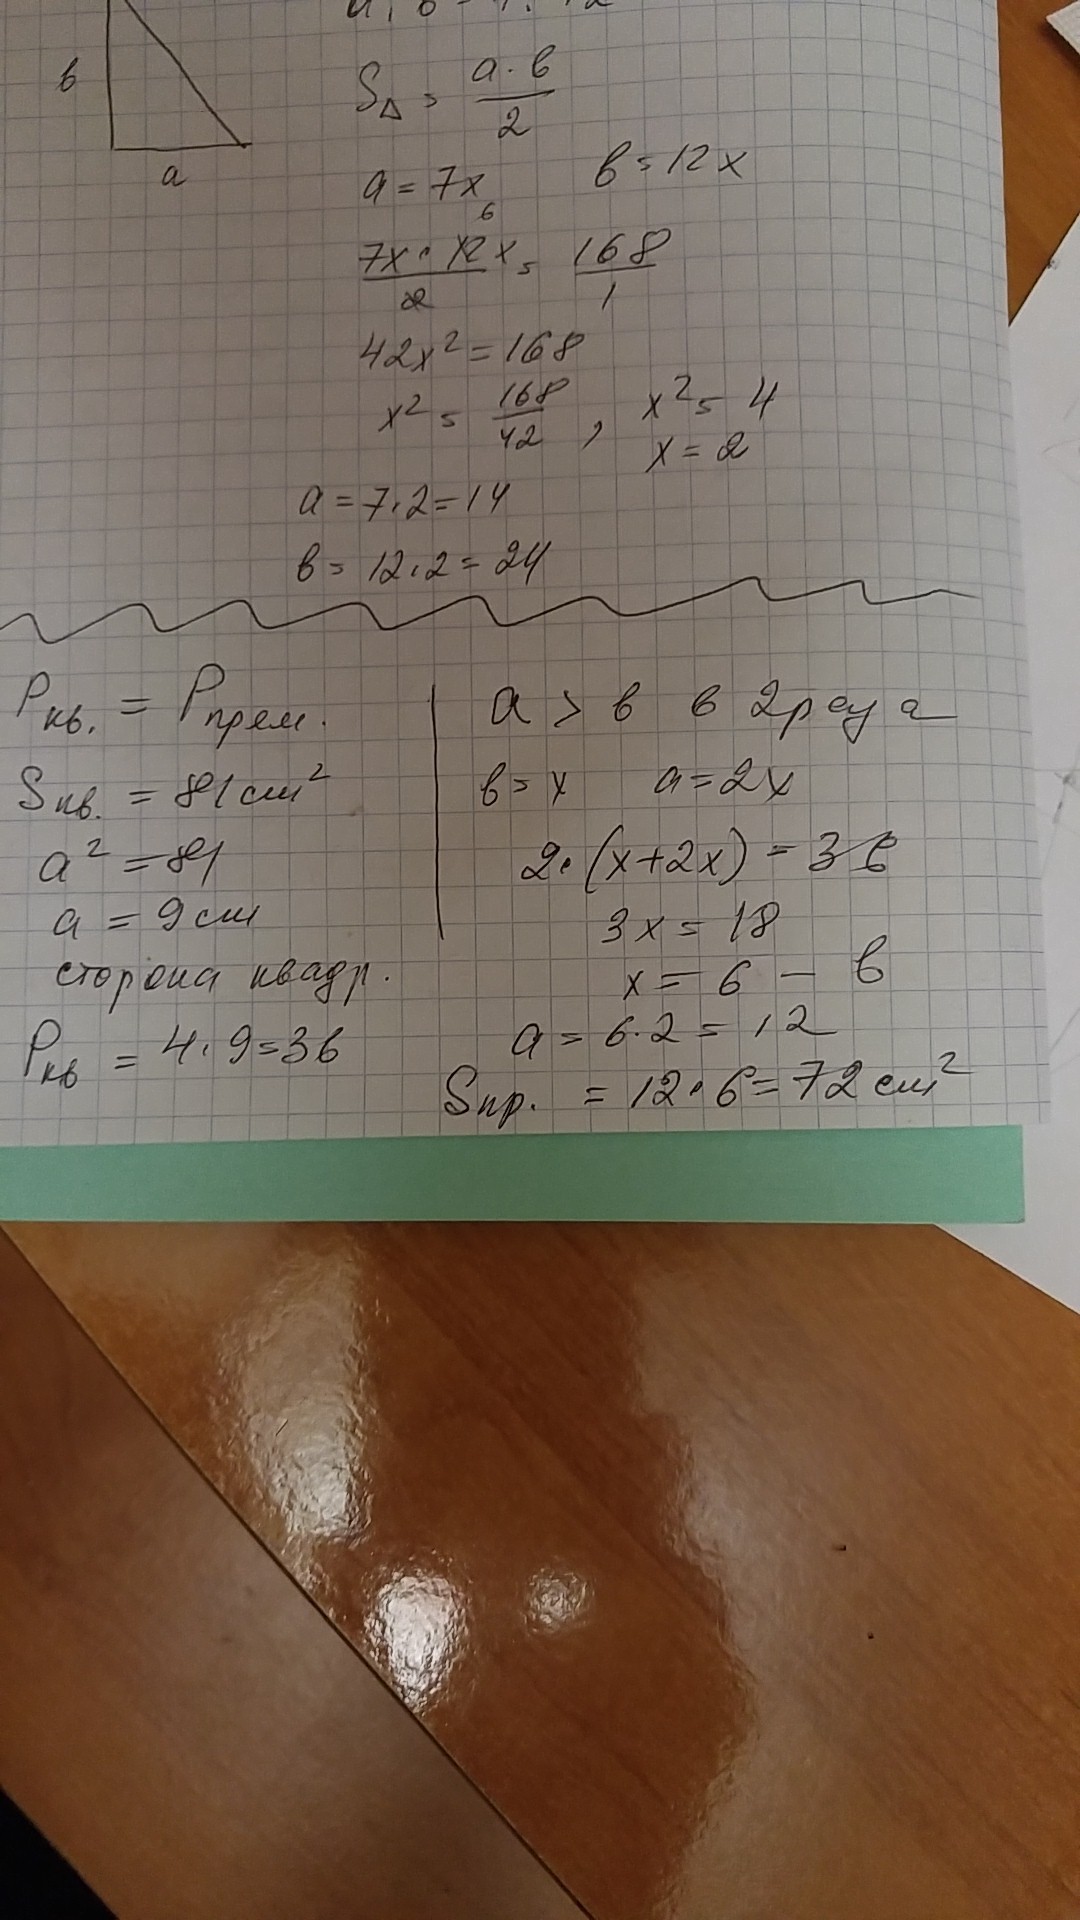 a : b = 7 : 12
b
S△ = a · b / 2
a
a = 7x b = 12x
6
7x · 12x / 2 = 168 / 1
42x² = 168
x² = 168 / 42 , x² = 4
x = 2
a = 7 · 2 = 14
b = 12 · 2 = 24
Pкв. = Pпрям.
Sкв. = 81 см²
a² = 81
a = 9 см
сторона квадр.
Pкв = 4 · 9 = 36
a > b в 2 раза
b = x a = 2x
2 · (x + 2x) = 36
3x = 18
x = 6 – b
a = 6 · 2 = 12
Sпр. = 12 · 6 = 72 см²